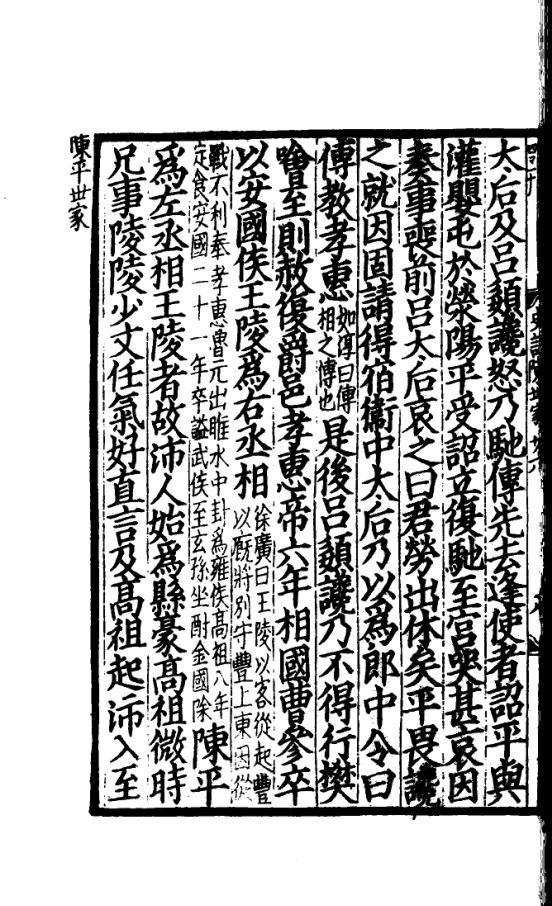 大后及呂嬃讒怒乃馳傳先去逢使者詔平與
灌嬰屯於滎陽平受詔立復馳至宫哭甚哀因
奏事喪前呂大后哀之曰君勞出休矣平畏讒
之就因固請得宿衞中大后乃以爲郎中令曰
傅教孝惠如淳曰傅相之傅也是後呂嬃讒乃不得行樊
噲至則赦復爵邑孝惠帝六年相國曹參卒
以安國侯王陵爲右丞相徐廣曰王陵以客從起豐以厩將别守豐上東因從
戰不利奉孝惠魯元出睢水中封爲雍侯髙祖八年定食安國二十一年卒謚武侯至玄孫坐酎金國除陳平
爲左丞相王陵者故沛人始爲縣豪髙祖微時
兄事陵陵少文任氣好直言及髙祖起沛入至
陳平世家